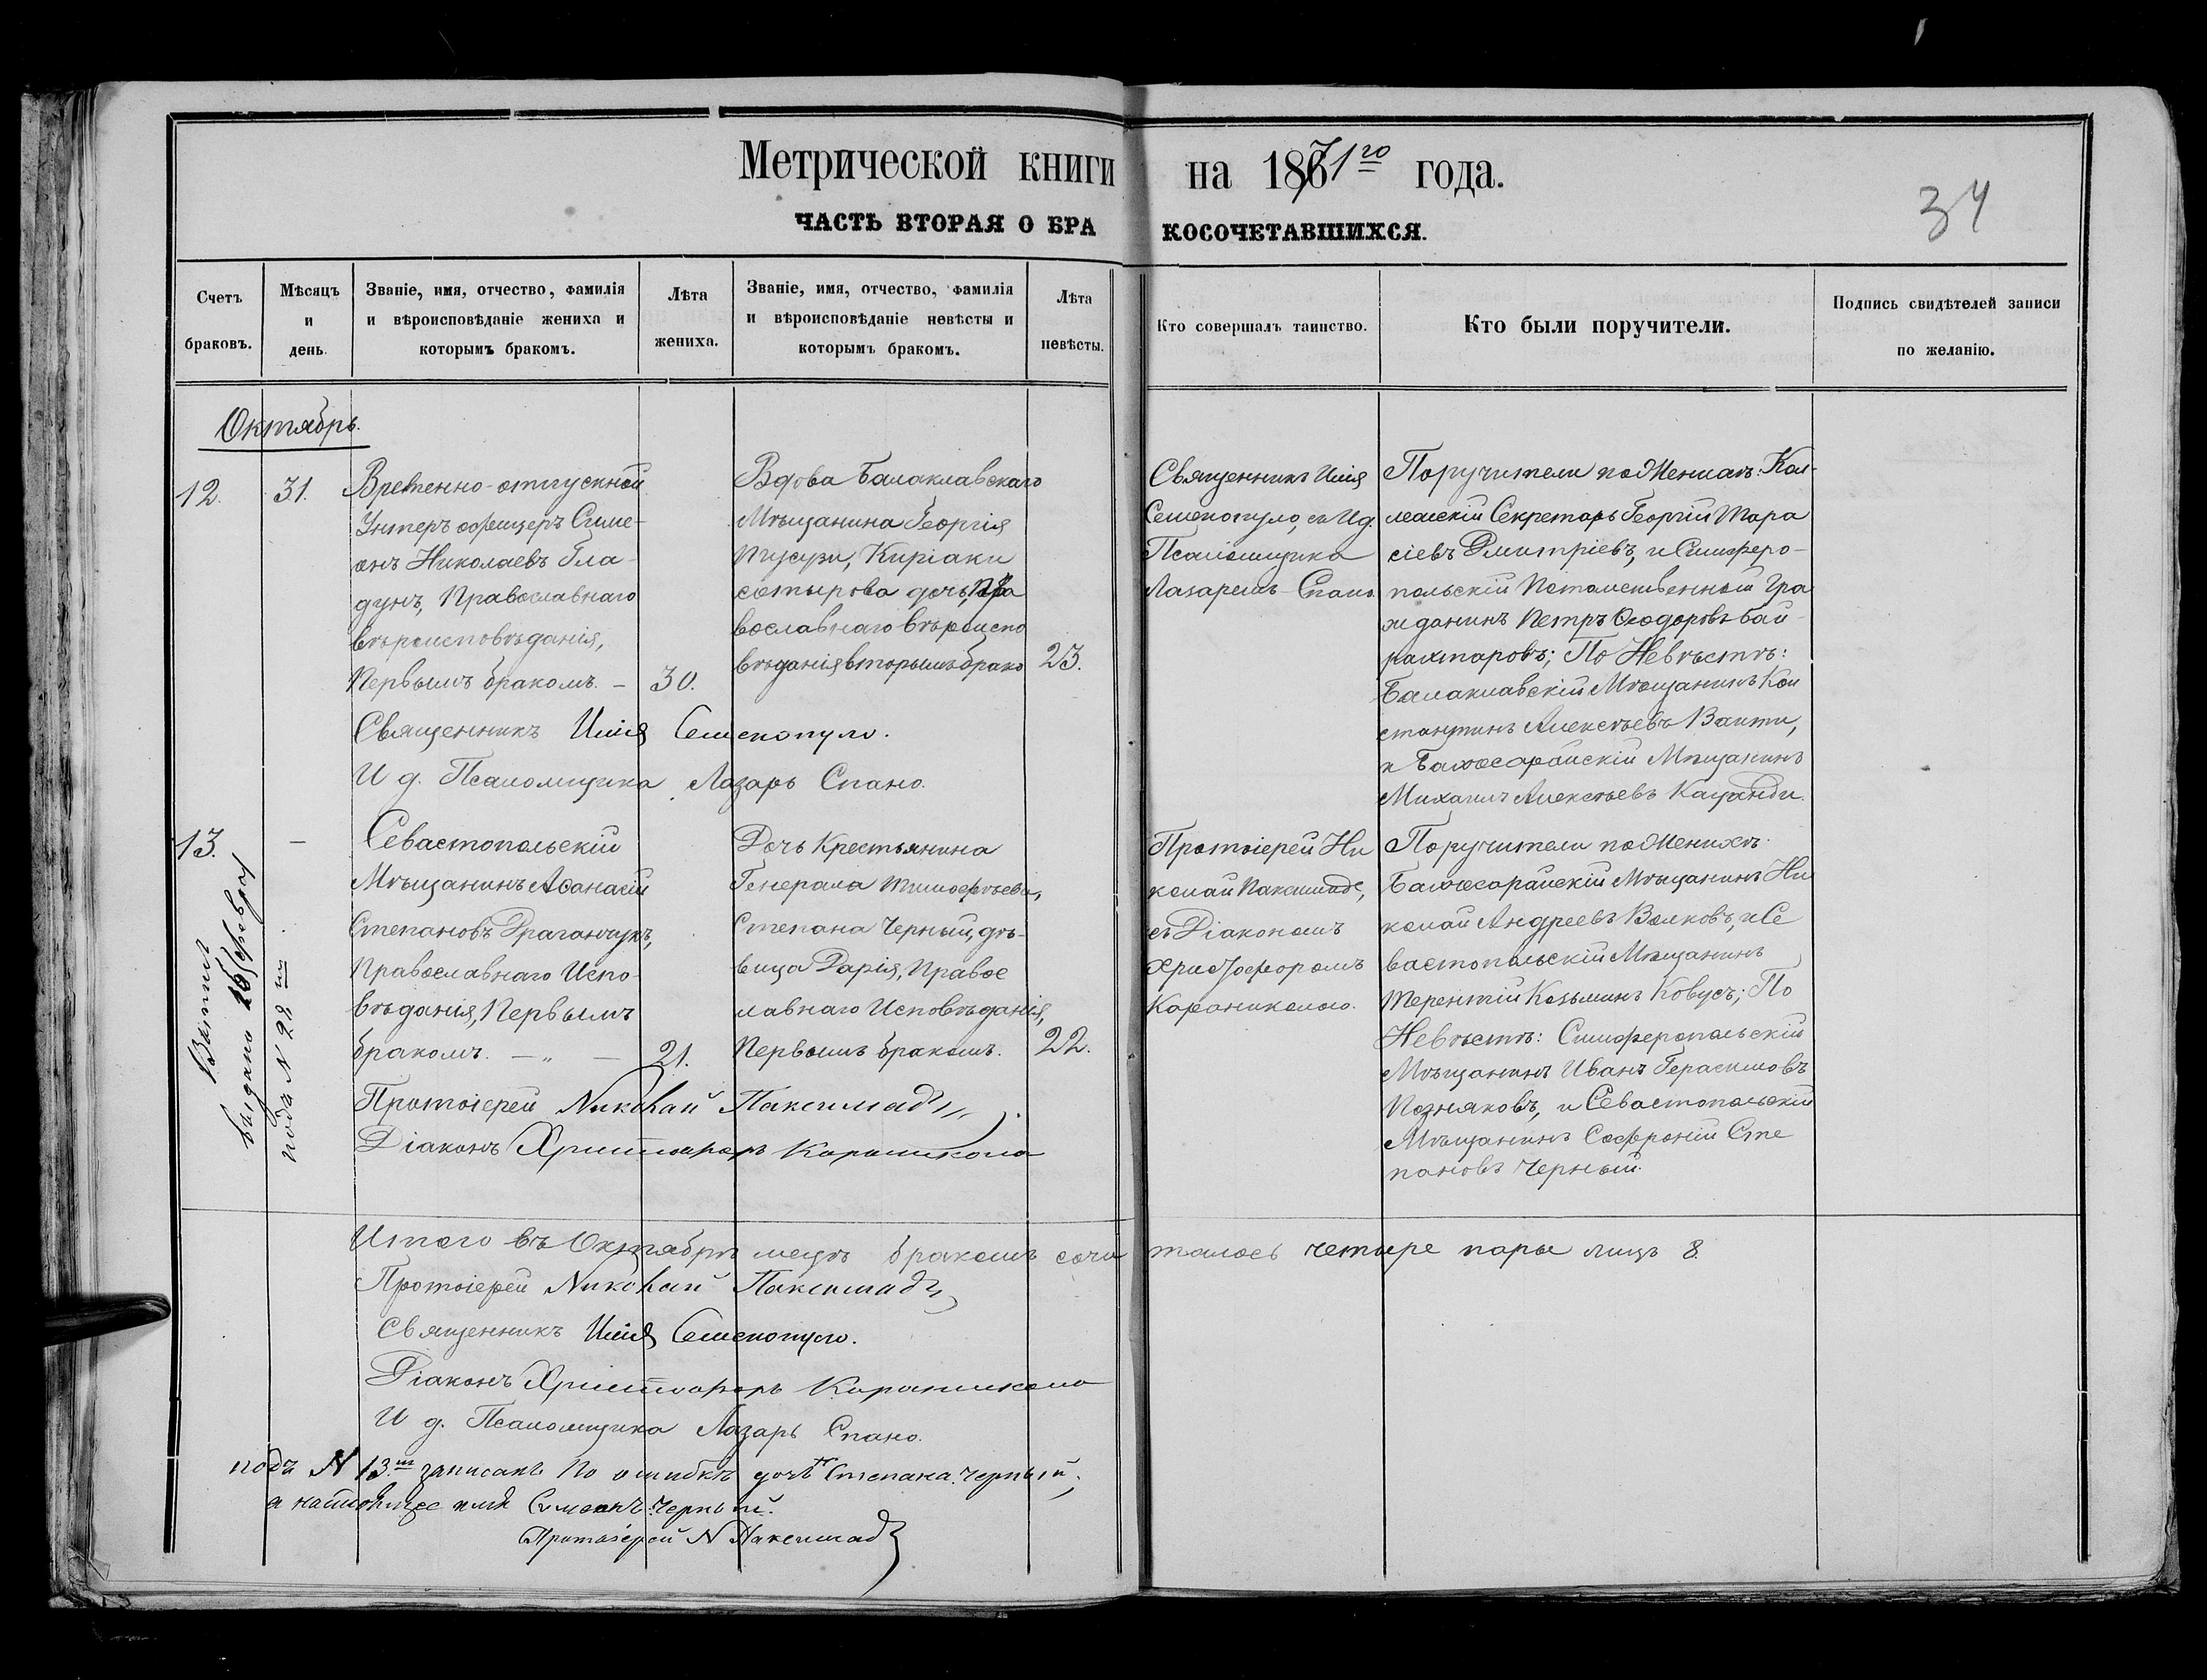 Метрической книги на 1871го года.
34
ЧАСТЬ ВТОРАЯ О БРАКОСОЧЕТАВШИХСЯ.
Счетъ браковъ.
Мѣсяцъ и день.
Званіе, имя, отчество, фамилія
и вѣроисповѣданіе жениха и
которымъ бракомъ.
Лѣта жениха.
Званіе, имя, отчество, фамилія
и вѣроисповѣданіе невѣсты и
которымъ бракомъ.
Лѣта невѣсты.
Кто совершалъ таинство.
Кто были поручители.
Подпись свидѣтелей записи
по желанію.
Октябрь.
12.
31.
Временно-отпускной
Унтеръ офицеръ Симе-
онъ Николаевъ Гла-
дунъ, Православнаго
вѣроисповѣданія,
Первымъ бракомъ. –
30.
Вдова Балаклавскаго
Мѣщанина Георгія
Кирiаки
сотырова дочь, Пра
вославнаго вѣроиспо
вѣданія вторымъ брако
23.
Священникъ Илія
Семенопуло, съ И.д.
Псаломщика
Лазаремъ Спано.
Поручители по Женихѣ: Кол-
лежскій Секретарь Георгій Тара
сіевъ Дмитріевъ, и Симферо-
польскій Потомственный Гра
жданинъ Петръ Ѳеодоровъ Бай-
рахтаровъ; По Невѣстѣ:
Балаклавскій Мѣщанинъ Кон
стантинъ Алексѣевъ
и Бахчесарайскій Мѣщанинъ
Михаилъ Алексѣевъ
Священникъ Илія Семенопуло.
И д. Псаломщика Лазарь Спано.
13.
–
Выдано
подъ N 28
Севастопольскій
Мѣщанинъ Аѳанасій
Степановъ Драганчукъ,
Православнаго Испо-
вѣданія, Первымъ
бракомъ. — „ —
21.
Дочь Крестьянина
Генерала Тимофѣева,
Степана Черный, дѣ-
вица Дарія, Правос
лавнаго Исповѣданія,
Первымъ бракомъ.
22.
Протоіерей Ни
колай Паксимаде,
съ Діакономъ
Христофоромъ
Караниколою.
Поручители по Женихѣ
Бахчесарайскій Мѣщанинъ Ни
колай Андреевъ Волковъ, и Се
вастопольскій Мѣщанинъ
Терентій Козьминъ Ковусъ; По
Невѣстѣ: Симферопольскій
Мѣщанинъ Иванъ Герасимовъ
Позняковъ, и Севастопольскій
Мѣщанинъ Софроній Сте
пановъ Черный.
Протоіерей Николай Паксимади
Діаконъ Христофоръ Караникола
Итого въ Октябрѣ мѣцѣ бракомъ сочеталось четыре пары лицъ 8.
Протоіерей Николай Паксимади
Священникъ Илія Семенопуло.
Діаконъ Христофоръ Караникола
И д. Псаломщика Лазарь Спано.
подъ N 13м записанъ по ошибкѣ дочь Степана Черный;
а настоящее имя Симеонъ Черный.
Протоіерей N Паксимади